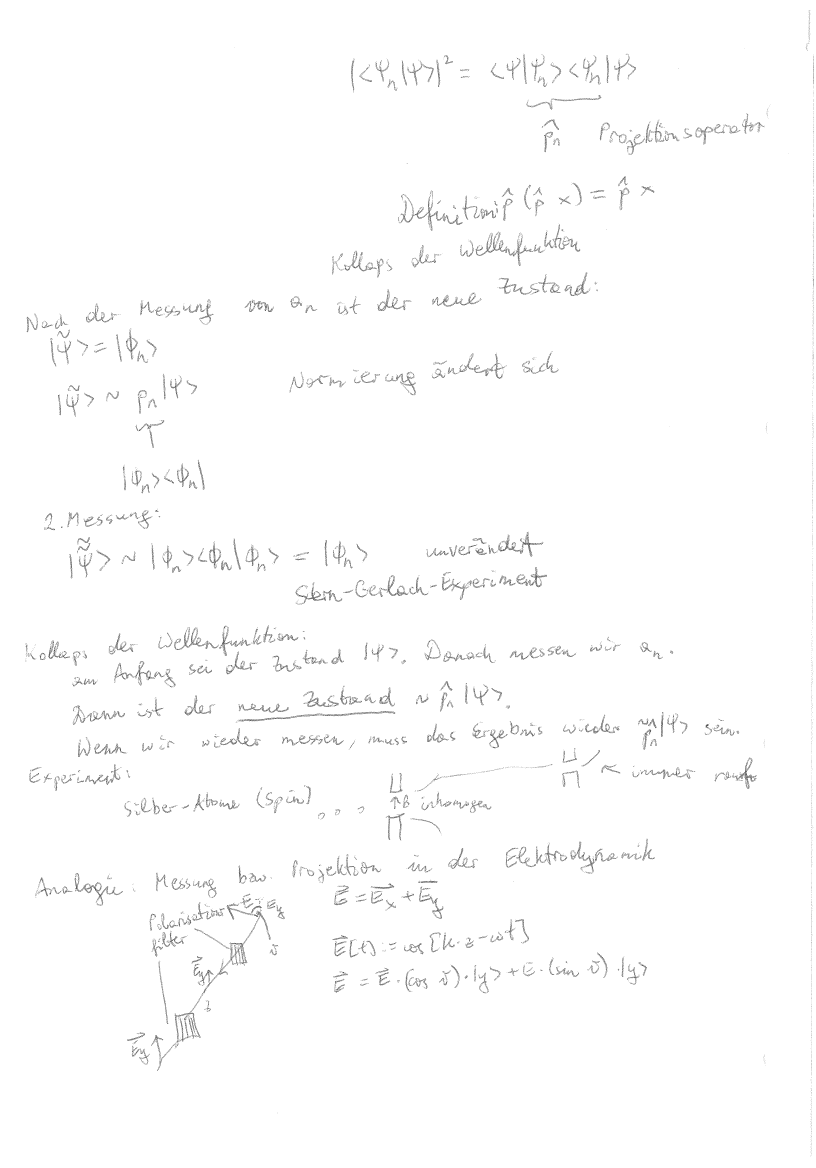 |<Ψₙ|Ψ>|² = <Ψ|Ψₙ><Ψₙ|Ψ>
p̂ₙ Projektionsoperator
Definition: p̂ (p̂ x) = p̂ x
Kollaps der Wellenfunktion
Nach der Messung von aₙ ist der neue Zustand:
|Ψ̃> = |ϕₙ>
|Ψ̃> ~ pₙ|Ψ> Normierung ändert sich
|ϕₙ><ϕₙ|
2. Messung:
|Ψ̃̃> ~ |ϕₙ><ϕₙ|ϕₙ> = |ϕₙ> unverändert
Stern-Gerlach-Experiment
Kollaps der Wellenfunktion:
am Anfang sei der Zustand |Ψ>. Danach messen wir aₙ.
Dann ist der neue Zustand ~ p̂ₙ |Ψ>.
Wenn wir wieder messen, muss das Ergebnis wieder ~ p̂ₙ|Ψ> sein.
Experiment:
Silber-Atome (Spin) ↑B inhomogen ← immer rauf
Analogie: Messung bzw. Projektion in der Elektrodynamik
Polarisations
filter
E⃗ = E⃗ₓ + E⃗y
E⃗[t] := cos[k·z-ωt]
E⃗ = E⃗·(cos ϑ)·|y> + E·(sin ϑ)·|y>
E⃗y
z
E⃗y